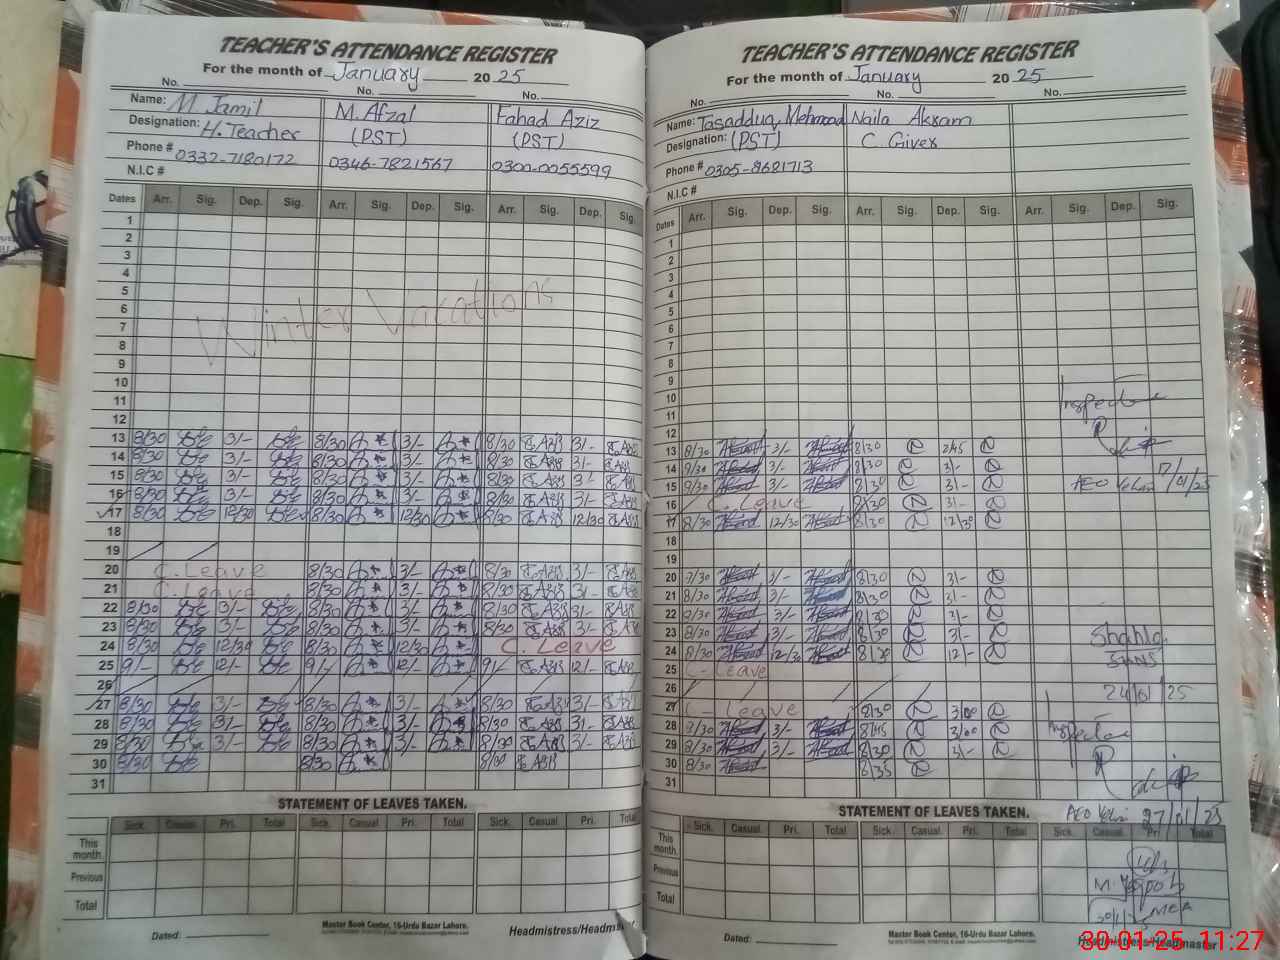 TEACHER'S ATTENDANCE REGISTER
For the month of January 2025
No. No. No.
Name: M. Jamil M. Afzal Fahad Aziz
Designation: H. Teacher (PST) (PST)
Phone # 0332-7180172 0346-7821567 0300-0055599
N.I.C #
Dates Arr. Sig. Dep. Sig. Arr. Sig. Dep. Sig. Arr. Sig. Dep. Sig.
1
2
3
4
5
6
7
8
9
10
11
12
Winter Vacations
13 8/30 3/- 8/30 3/- 8/30 3/-
14 8/30 3/- 8/30 3/- 8/30 3/-
15 8/30 3/- 8/30 3/- 8/30 3/-
16 8/30 3/- 8/30 3/- 8/30 3/-
17 8/30 12/30 8/30 12/30 8/30 12/30
18
19
20 C. Leave 8/30 3/- 8/30 3/-
21 C. Leave 8/30 3/- 8/30 3/-
22 8/30 3/- 8/30 3/- 8/30 3/-
23 8/30 3/- 8/30 3/- 8/30 3/-
24 8/30 12/30 8/30 12/30 C. Leave
25 9/- 12/- 9/- 12/- 9/- 12/-
26
27 8/30 3/- 8/30 3/- 8/30 3/-
28 8/30 3/- 8/30 3/- 8/30 3/-
29 8/30 3/- 8/30 3/- 8/30 3/-
30 8/30 8/30 8/30
31
STATEMENT OF LEAVES TAKEN.
Sick. Casual. Pri. Total Sick. Casual. Pri. Total Sick. Casual Pri. Total
This month.
Previous
Total
Dated:
Master Book Center, 16-Urdu Bazar Lahore.
Headmistress/Headm
TEACHER'S ATTENDANCE REGISTER
For the month of January 2025
No. No. No.
Name: Tasadduq Mehmood Naila Akram
Designation: (PST) C. Giver
Phone # 0305-8681713
N.I.C #
Dates Arr. Sig. Dep. Sig. Arr. Sig. Dep. Sig. Arr. Sig. Dep. Sig.
1
2
3
4
5
6
7
8
9
10
11
12
13 8/30 3/- 8/30 2:45
14 8/30 3/- 8/30 3/-
15 8/30 3/- 8/30 3/-
16 C. Leave 8/30 3/-
17 8/30 12/30 8/30 12/30
18
19
20 8/30 3/- 8/30 3/-
21 8/30 3/- 8/30 3/-
22 8/30 3/- 8/30 3/-
23 8/30 3/- 8/30 3/-
24 8/30 12/30 8/30 12/-
25 C. Leave
26
27 C. Leave 8/30 3/00
28 8/30 3/- 8/45 3/00
29 8/30 3/- 8/30 3/-
30 8/30 8/35
31
AEO
17/01/25
Shahla
24/01/25
AEO
27/01/25
STATEMENT OF LEAVES TAKEN.
Sick. Casual. Pri. Total Sick. Casual. Pri. Total Sick. Casual. Pri. Total
This month.
Previous
Total
MEA
Dated:
Master Book Center, 16-Urdu Bazar Lahore.
Headmistress/Headmaster
30-01-25 11:27